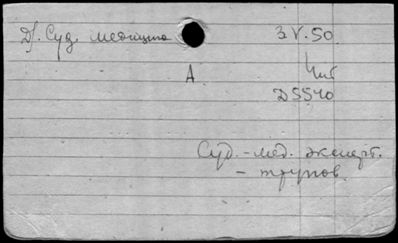 Д/. Суд. медицина
3.V.50.
А
Чит
D5540
Суд.-мед. эксперт.
- трупов.